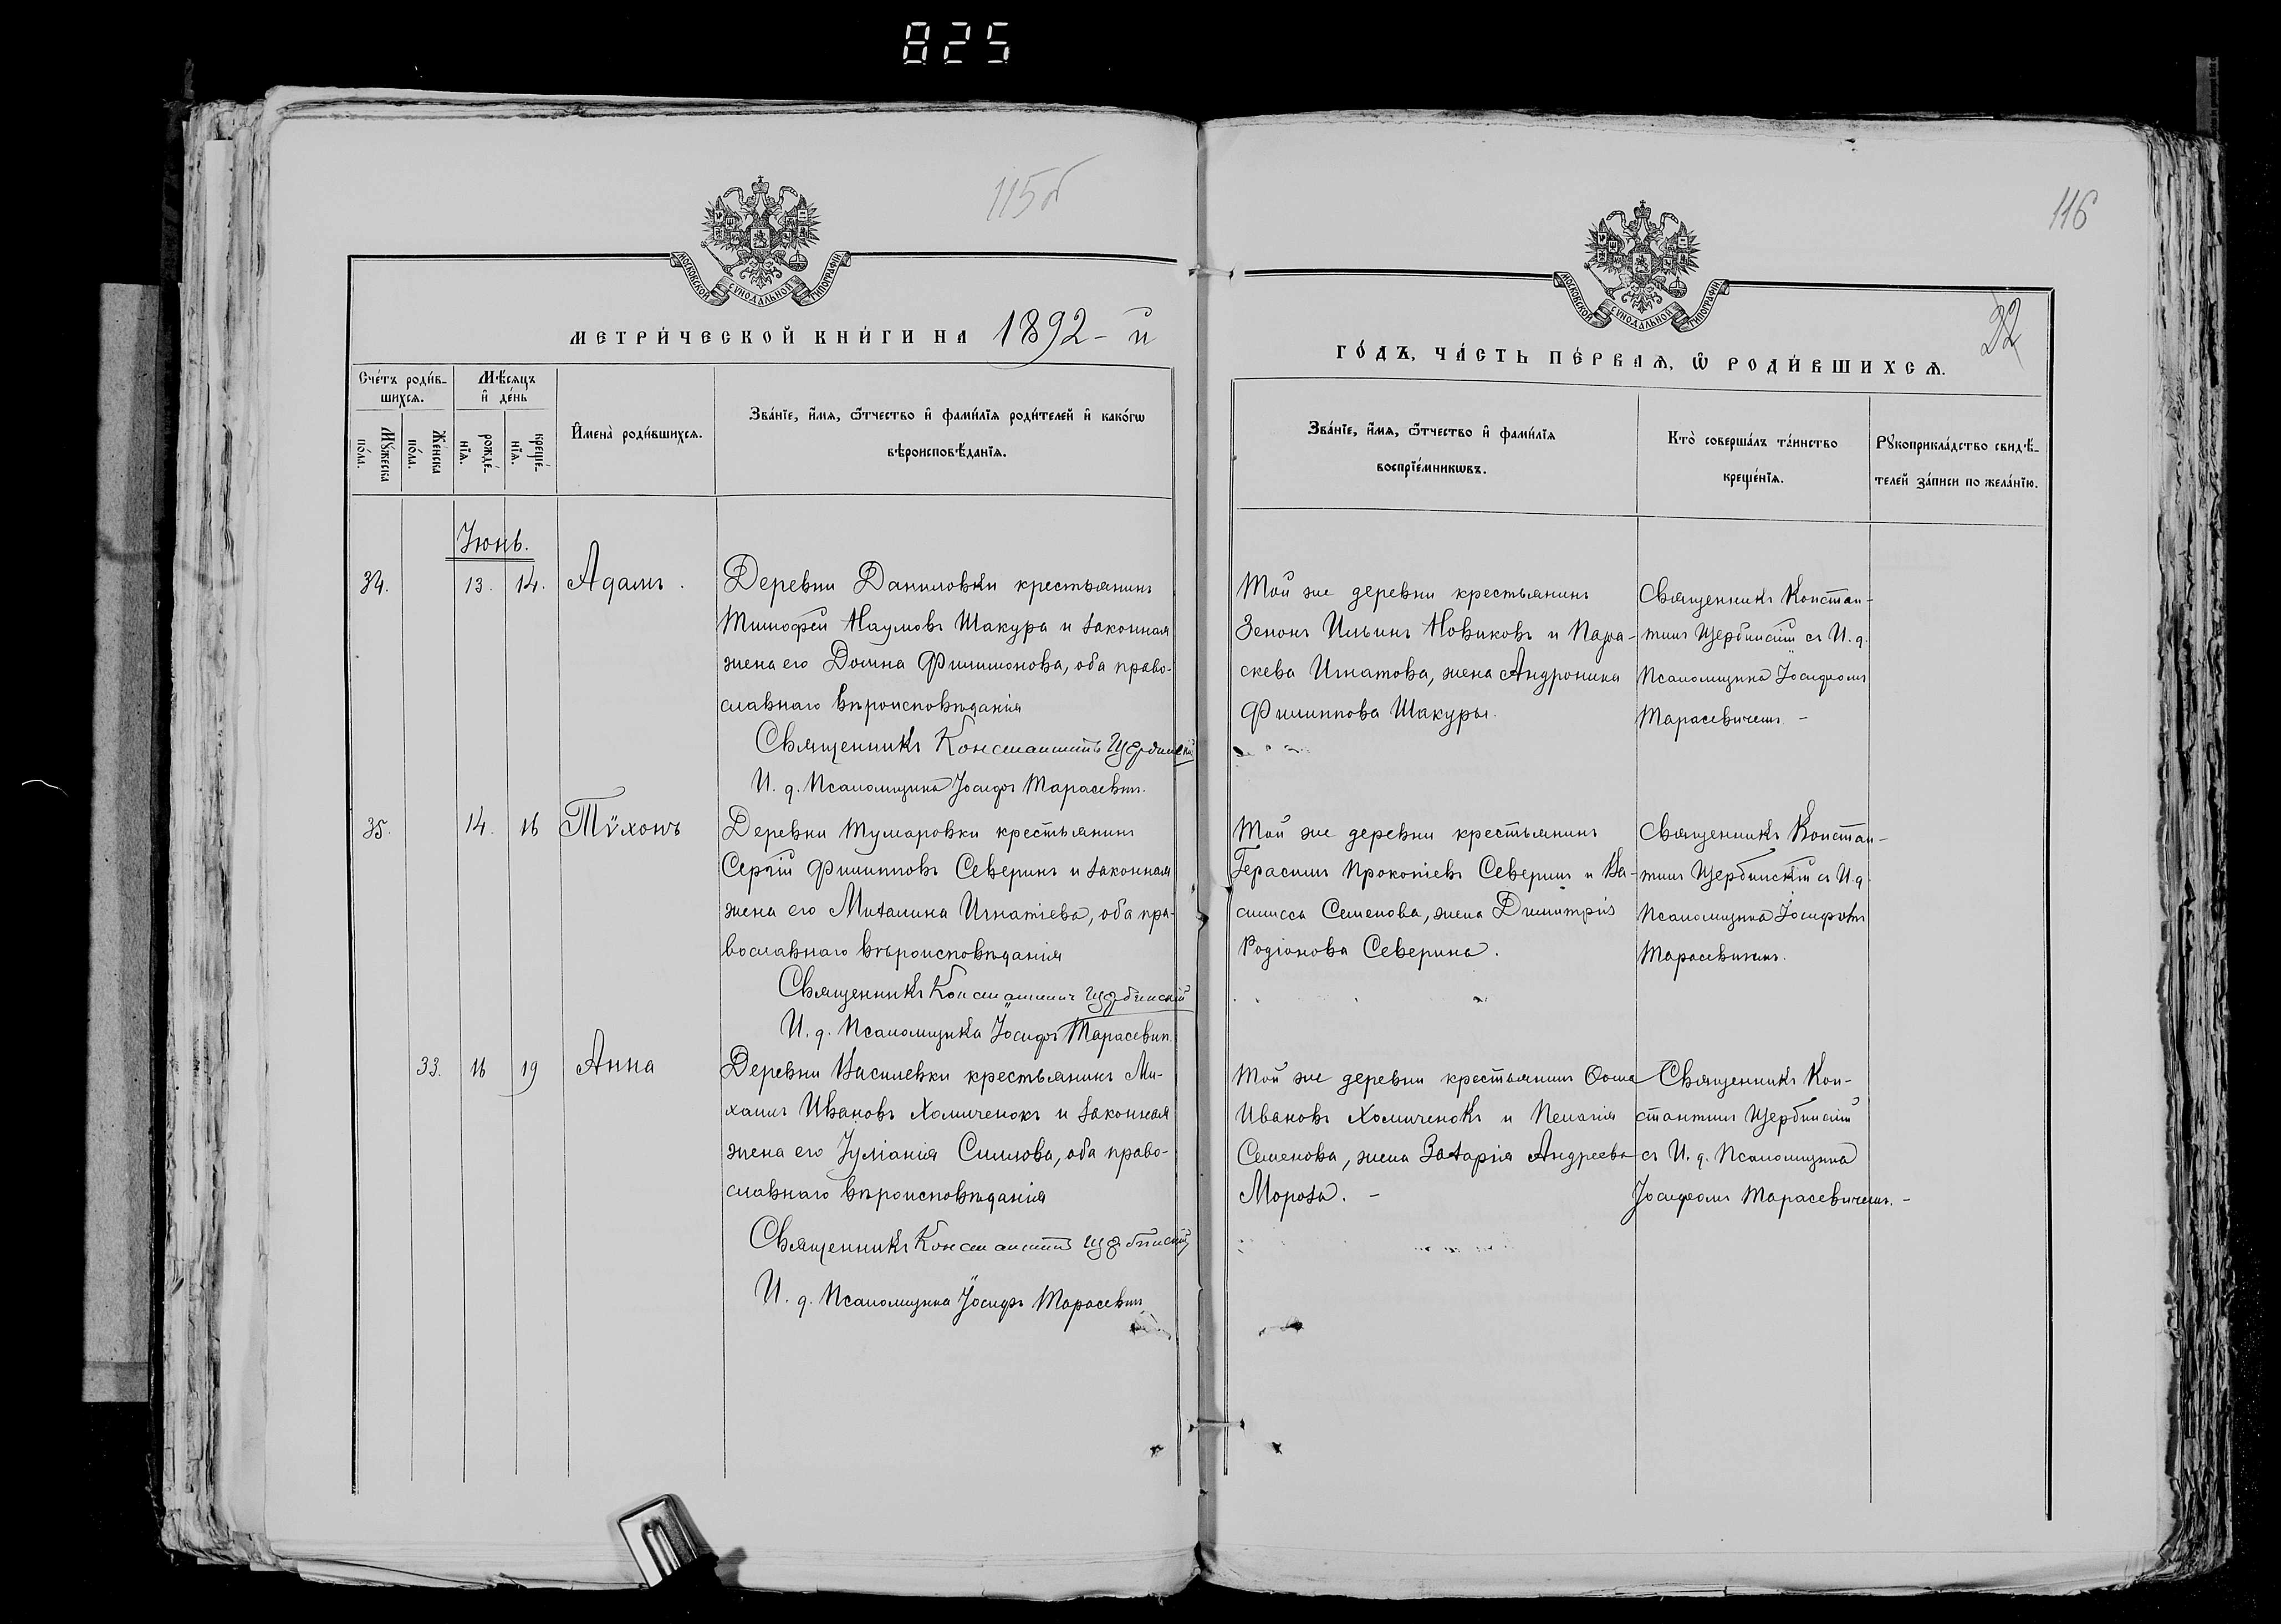 825
115б
116
МОСКОВСКОЙ СУНОДАЛЬНОЙ ТИПОГРАФИИ
МОСКОВСКОЙ СУНОДАЛЬНОЙ ТИПОГРАФИИ
32
МЕТРИ́ЧЕСКОЙ КНИ́ГИ НА 1892-й
ГО́ДЪ, ЧА́СТЬ ПЕ́РВАѦ, Ѿ РОДИ́ВШИХСѦ.
Сче́тъ роди́в-
шихсѧ.
Мѣ́сѧцъ
и҆ де́нь
Мꙋ́жеска
по́ла.
Же́нска
по́ла.
рожде́-
нїѧ.
креще́-
нїѧ.
И҆мена̀ роди́вшихсѧ.
Зва́нїе, и҆́мѧ, ѻ҆́тчество и҆ фами́лїѧ роди́телей и҆ како́гѡ
вѣроисповѣ́данїѧ.
Зва́нїе, и҆́мѧ, ѻ҆́тчество и҆ фами́лїѧ
воспрїе́мникѡвъ.
Кто̀ соверша́лъ та́инство
креще́нїѧ.
Рꙋкоприкла́дство свидѣ́-
телей за́писи по жела́нїю.
Іюнь.
34. 13. 14. Адамъ.
Деревни Даниловки крестьянинъ
Тимофей Наумовъ Шакура и законная
жена его Домна Филимонова, оба право-
славнаго вѣроисповѣданія
Священникъ Константинъ Щербинскій
И. д. Псаломщика Іосифъ Тарасевич.
Той же деревни крестьянинъ
Зенонъ Ильинъ Новиковъ и Пара-
скева Игнатова, жена Андроника
Филиппова Шакуры.
Священникъ Констан-
тинъ Щербинскій съ И. д.
Псаломщика Іосифомъ
Тарасевичемъ. -
35. 14. 16 Тѵхонъ
Деревни Тумаровки крестьянинъ
Сергій Филипповъ Северинъ и законная
жена его Миталина Игнатіева, оба пра-
вославнаго вѣроисповѣданія
Священникъ Константинъ Щербинскій
И. д. Псаломщика Іосифъ Тарасевич.
Той же деревни крестьянинъ
Герасимъ Прокопіевъ Северинъ и Ва-
силисса Семенова, жена Димитрія
Родіонова Северина.
Священникъ Констан-
тинъ Щербинскій съ И. д.
Псаломщика Іосифомъ
Тарасевичемъ.
33. 16 19 Анна
Деревни Василевки крестьянинъ Ми-
хаилъ Ивановъ Хомиченокъ и законная
жена его Іуліанія Силлова, оба право-
славнаго вѣроисповѣданія
Священникъ Константинъ Щербинскій
И. д. Псаломщика Іосифъ Тарасевич
Той же деревни крестьянинъ Ѳома
Ивановъ Хомиченокъ и Пелагія
Семенова, жена Захарія Андреева
Мороза. -
Священникъ Кон-
стантинъ Щербинскій
съ И. д. Псаломщика
Іосифомъ Тарасевичемъ. -